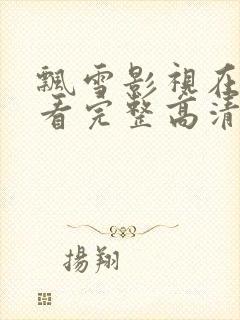 飄雪影視在
看完整高清
揚翔